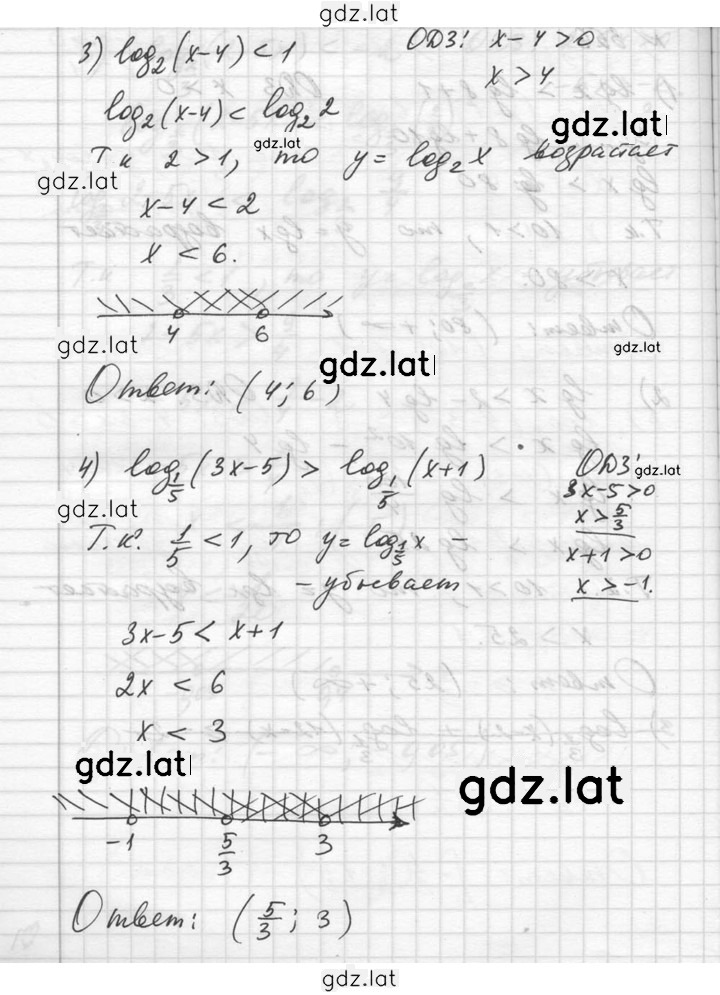 gdz.lat
3) log₂(x-4) < 1 ОДЗ: x-4>0
x>4
log₂(x-4) < log₂2
gdz.lat
gdz.lat
Т.к 2>1, то y = log₂x возрастает
gdz.lat
x-4 < 2
x < 6.
4 6
gdz.lat
gdz.lat
gdz.lat
Ответ: (4; 6)
4) log_{1/5}(3x-5) > log_{1/5}(x+1) ОДЗ:
gdz.lat
3x-5>0
gdz.lat
x>5/3
Т.к. 1/5 <1, то y = log_{1/5}x -
x+1>0
- убывает
x>-1.
3x-5 < x+1
2x < 6
x < 3
gdz.lat
gdz.lat
-1 5/3 3
Ответ: (5/3; 3)
gdz.lat